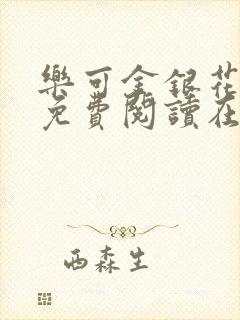 樂可金銀花
免費閱讀在
西森生